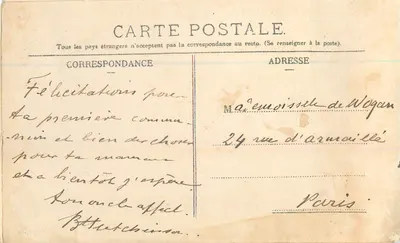 CARTE POSTALE.
Tous les pays étrangers n'acceptent pas la correspondance au recto. (Se renseigner à la poste).
CORRESPONDANCE
Félicitations pour
ta première commu-
nion et bien des choses
pour ta maman
et a bientôt j'espère
ton oncle affect.
B Hutchinson
ADRESSE
Mademoisselle de Wogan
24 rue d'armaillé
Paris.